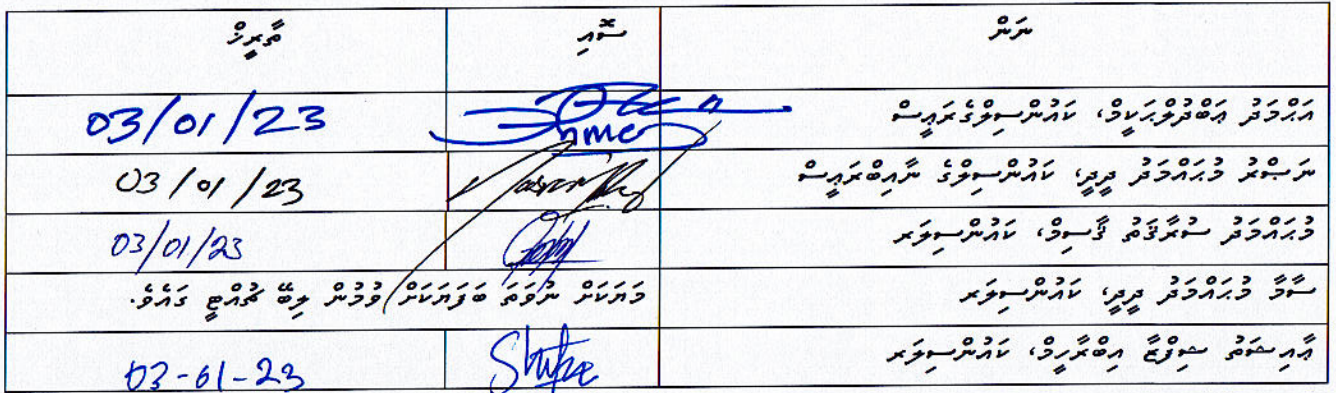 ނަން ސޮއި ތާރީޚް
އަޙްމަދު ޢަބްދުލްޙަކީމް، ކައުންސިލްގެރައީސް 03/01/23
ނަޞްރު މުޙައްމަދު ދީދީ، ކައުންސިލްގެ ނައިބްރައީސް 03/01/23
މުޙައްމަދު ސުރާޤަތު ޤާސިމް، ކައުންސިލަރ 03/01/23
ސާމާ މުޙައްމަދު ދީދީ، ކައުންސިލަރ މަޔަކަށް ނުވަތަ ބަފަޔަކަށް ވުމުން ލިބޭ ޗުއްޓީ ގައެވެ.
ޢާއިޝަތު ޝިފްޒާ އިބްރާހީމް، ކައުންސިލަރ 03-01-23